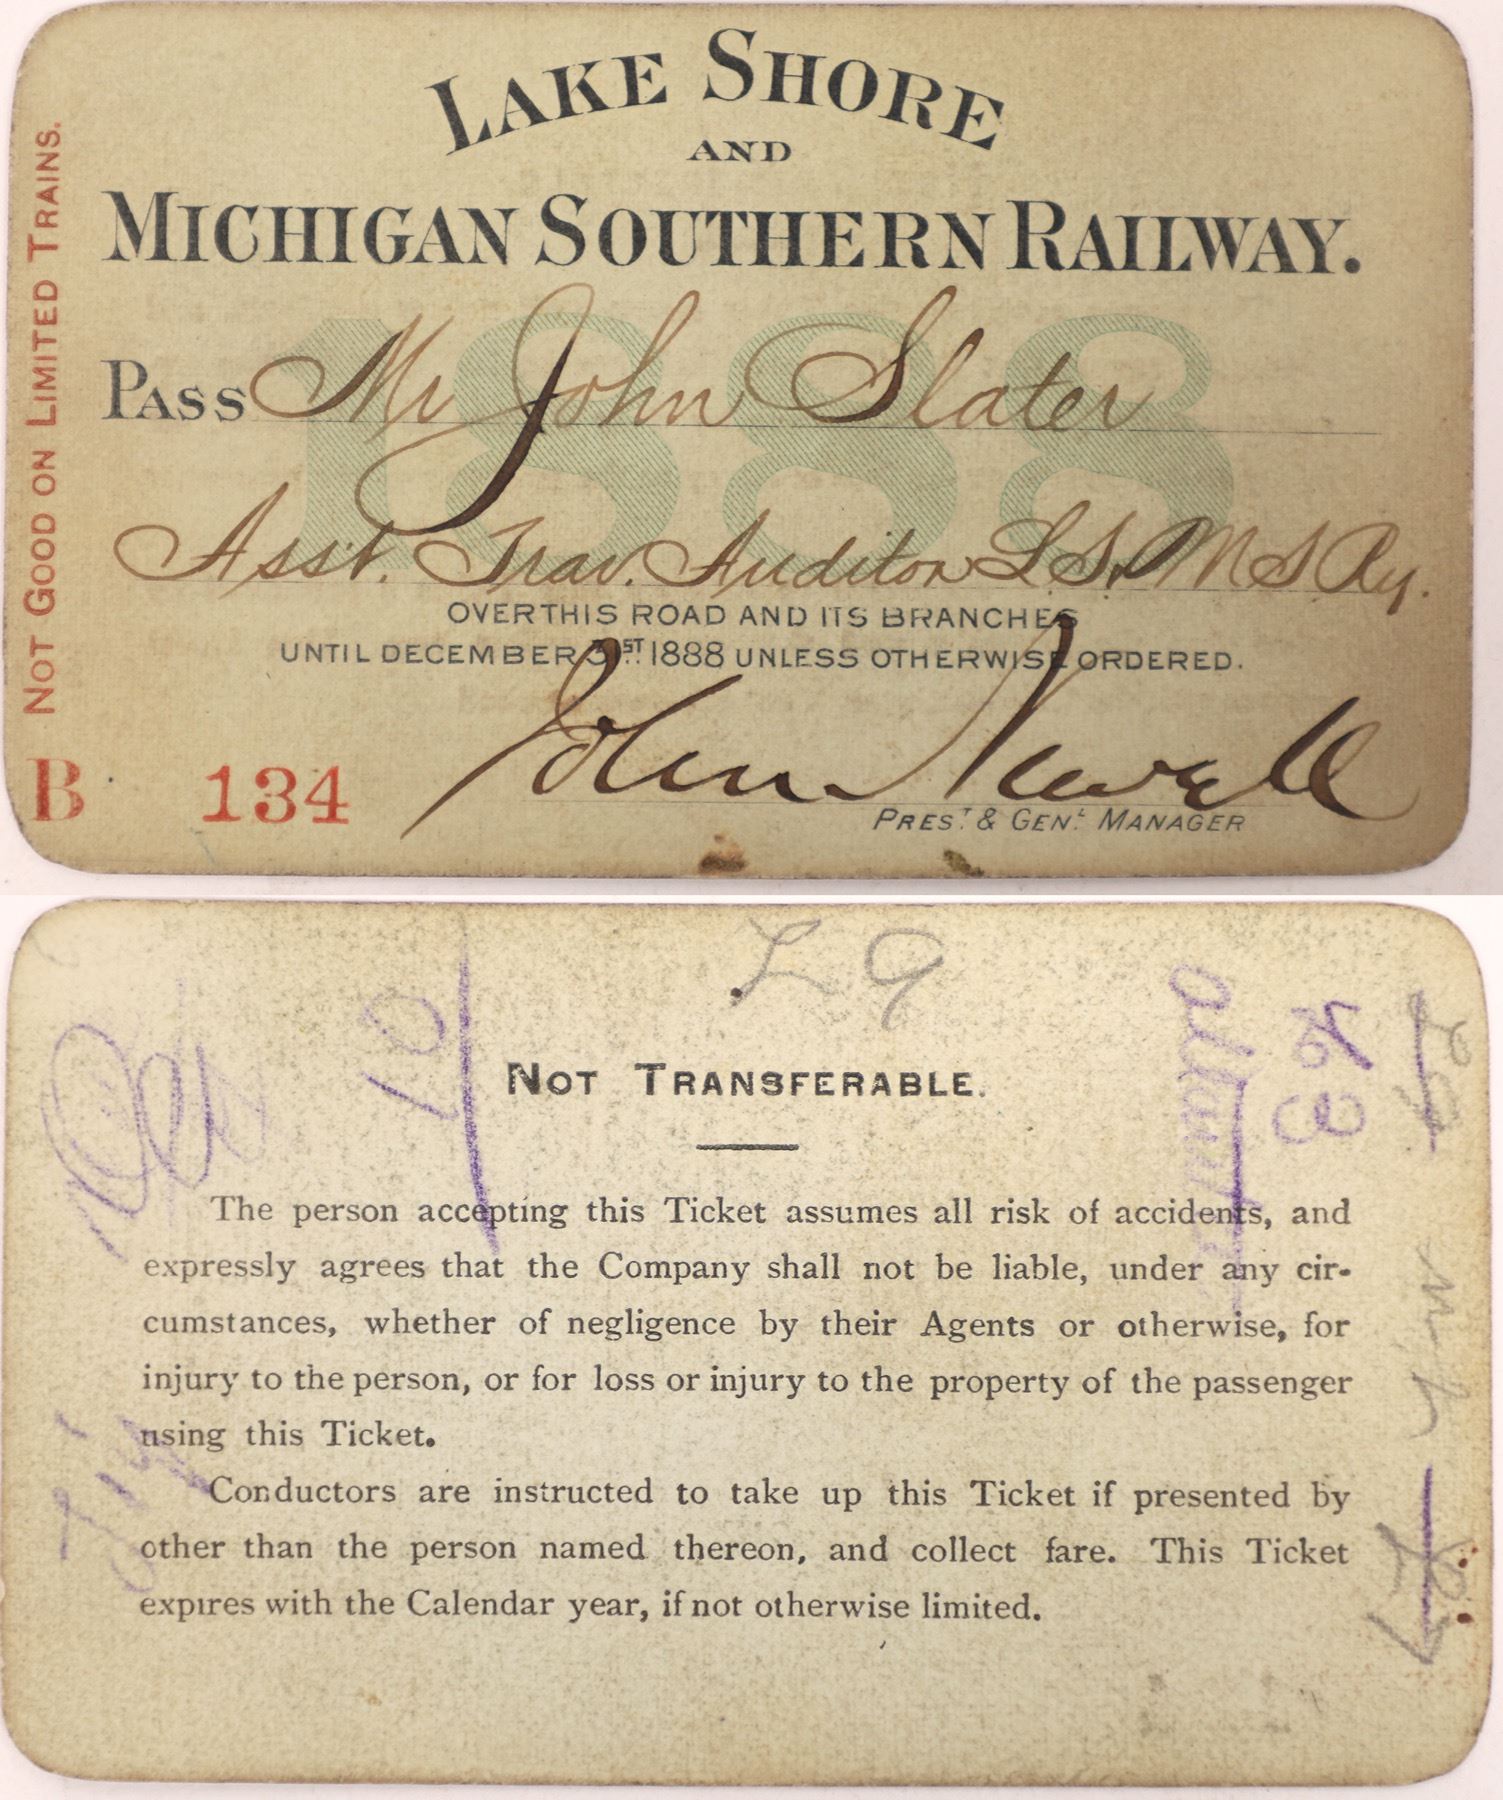 LAKE SHORE
AND
MICHIGAN SOUTHERN RAILWAY.
1888
PASS Mr John Slater
Asst. Trav. Auditor L. S. & M S Ry.
OVER THIS ROAD AND ITS BRANCHES
UNTIL DECEMBER 31ST 1888 UNLESS OTHERWISE ORDERED.
John Newell
PREST. & GENL. MANAGER
B 134
NOT GOOD ON LIMITED TRAINS.
L 9
NOT TRANSFERABLE.
The person accepting this Ticket assumes all risk of accidents, and
expressly agrees that the Company shall not be liable, under any cir-
cumstances, whether of negligence by their Agents or otherwise, for
injury to the person, or for loss or injury to the property of the passenger
using this Ticket.
Conductors are instructed to take up this Ticket if presented by
other than the person named thereon, and collect fare. This Ticket
expires with the Calendar year, if not otherwise limited.